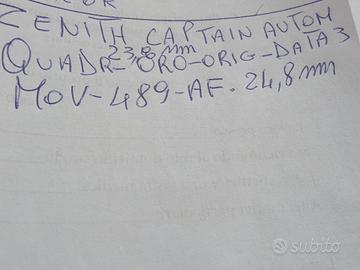 ZENITH CAPTAIN AUTOM
23,8 mm
QUADR-ORO-ORIG-DATA 3
MOV-489-AF. 24,8 mm
subito